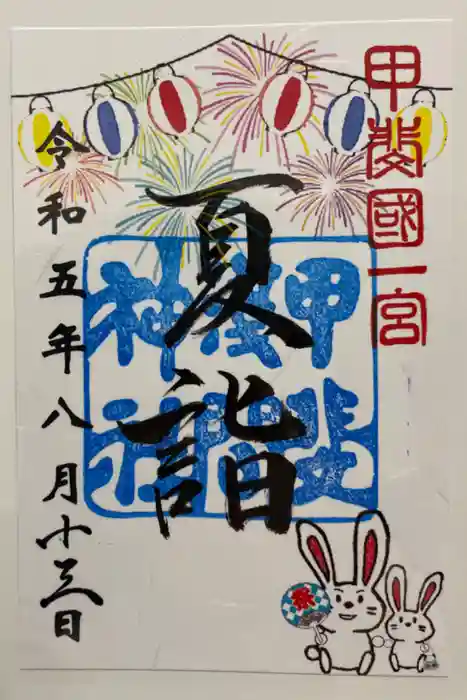 甲斐國一宮
夏詣
甲斐
淺間
神社
令和五年八月十三日
祭